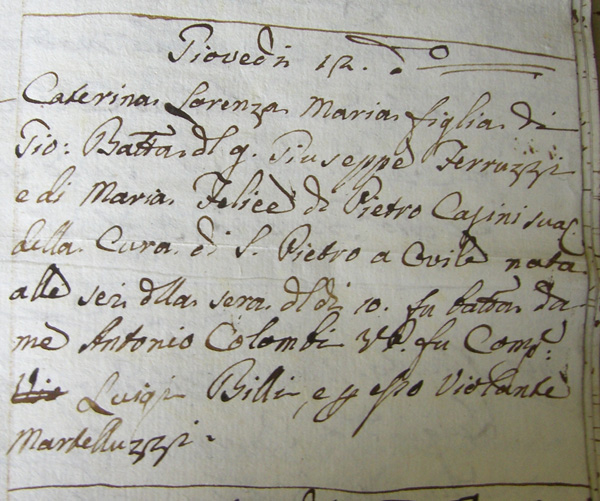 Giovedì 12. do
Caterina Lorenza Maria figlia di
Gio: Batta dl q. Giuseppe Ferruzzi
e di Maria Felice di Pietro Casini sua C.
della Cura di S. Pietro a Ovile nata
alle sei dlla sera dl dì 10. fu batta da
me Antonio Colombi Vb. fu Comp:
Luigi Billi, e p esso Violante
Martelluzzi.